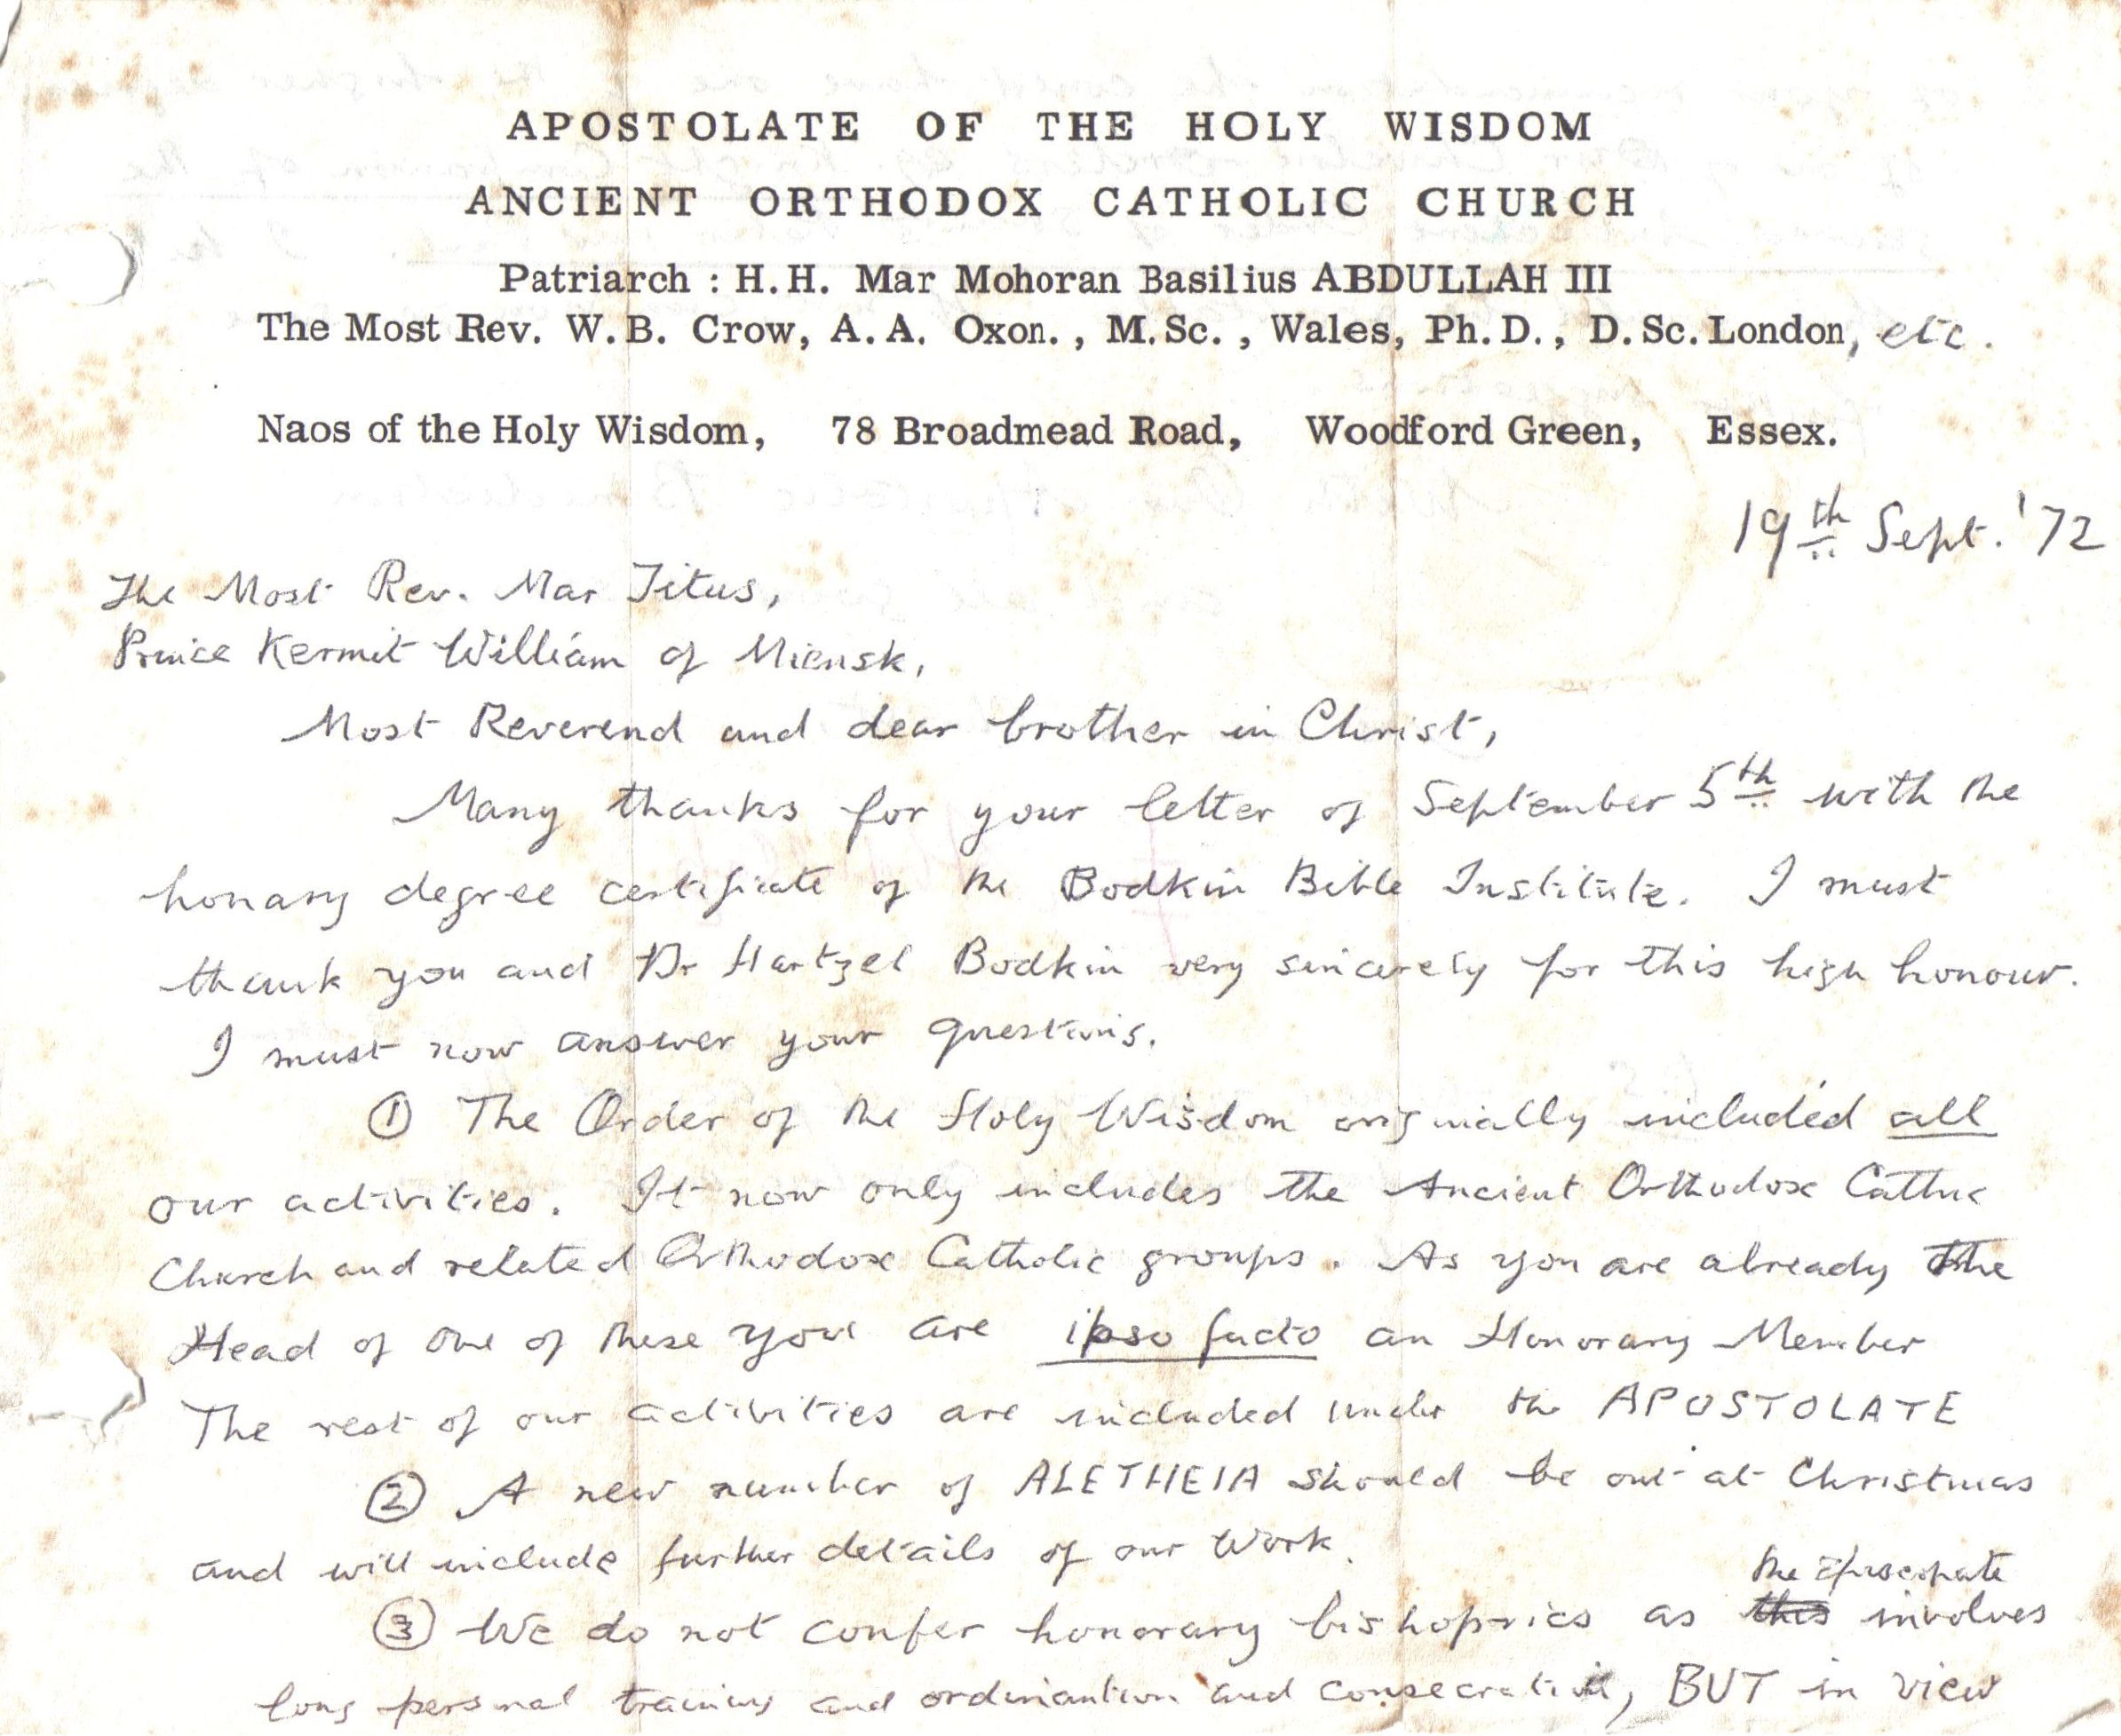 APOSTOLATE OF THE HOLY WISDOM
ANCIENT ORTHODOX CATHOLIC CHURCH
Patriarch : H.H. Mar Mohoran Basilius ABDULLAH III
The Most Rev. W.B. Crow, A.A. Oxon., M.Sc., Wales, Ph.D., D.Sc. London, etc.
Naos of the Holy Wisdom, 78 Broadmead Road, Woodford Green, Essex.
19th Sept. '72
The Most Rev. Mar Titus,
Prince Kermit William of Miensk,
Most Reverend and dear brother in Christ,
Many thanks for your letter of September 5th with the
honary degree certificate of the Bodkin Bible Institute. I must
thank you and Dr Hartzel Bodkin very sincerely for this high honour.
I must now answer your questions.
① The Order of the Holy Wisdom originally included all
our activities. It now only includes the Ancient Orthodox Cathlic
Church and related Orthodox Catholic groups. As you are already the
Head of one of these you are ipso facto an Honorary Member
The rest of our activities are included under the APOSTOLATE
② A new number of ALETHEIA should be out at Christmas
and will include further details of our Work.
the Episcopate
③ We do not confer honorary bishoprics as this involves
long personal training and ordinantion and consecration, BUT in view